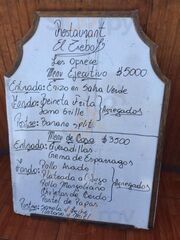 Restaurant
El Trebol
Les Ofrece
Menú Ejecutivo $5000
Entrada: Erizo en Salsa Verde
Fondo: Reineta Frita
Lomo Grille
Agregados
Postre: Banana Split
Menú de Casa $3500
Entrada: Empanadillas
Crema de Esparragos
Fondo: Pollo Asado
Plateada al Jugo
Pollo Mongoliano
Agregados
Chuletas de Cerdo
Pastel de Papas
Postre: Semola